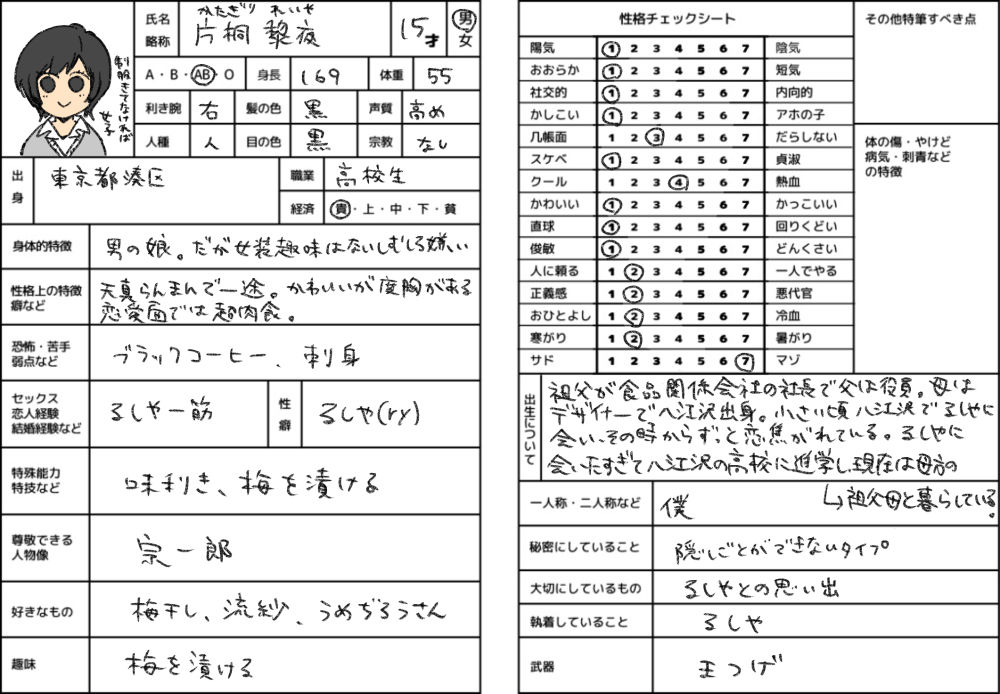 氏名
略称
かたぎり れいや
片桐 黎夜
15才
男
女
制服きてなければ
女子
A・B・AB・O
身長
169
体重
55
利き腕
右
髪の色
黒
声質
高め
人種
人
目の色
黒
宗教
なし
出身
東京都湊区
職業
高校生
経済
貴・上・中・下・貧
身体的特徴
男の娘。だが女装趣味はないしむしろ嫌い
性格上の特徴
癖など
天真らんまんで一途。かわいいが度胸がある
恋愛面では超肉食。
恐怖・苦手
弱点など
ブラックコーヒー、刺身
セックス
恋人経験
結婚経験など
るしや一筋
性癖
るしや(ry)
特殊能力
特技など
味利き、梅を漬ける
尊敬できる
人物像
宗一郎
好きなもの
梅干し、流紗、うめぢろうさん
趣味
梅を漬ける
性格チェックシート
陽気 1 2 3 4 5 6 7 陰気
おおらか 1 2 3 4 5 6 7 短気
社交的 1 2 3 4 5 6 7 内向的
かしこい 1 2 3 4 5 6 7 アホの子
几帳面 1 2 3 4 5 6 7 だらしない
スケベ 1 2 3 4 5 6 7 貞淑
クール 1 2 3 4 5 6 7 熱血
かわいい 1 2 3 4 5 6 7 かっこいい
直球 1 2 3 4 5 6 7 回りくどい
俊敏 1 2 3 4 5 6 7 どんくさい
人に頼る 1 2 3 4 5 6 7 一人でやる
正義感 1 2 3 4 5 6 7 悪代官
おひとよし 1 2 3 4 5 6 7 冷血
寒がり 1 2 3 4 5 6 7 暑がり
サド 1 2 3 4 5 6 7 マゾ
その他特筆すべき点
体の傷・やけど
病気・刺青など
の特徴
出生について
祖父が食品関係会社の社長で父は役員。母は
デザイナーで八江沢出身。小さい頃八江沢でるしやに
会い、その時からずっと恋焦がれている。るしやに
会いたすぎて八江沢の高校に進学し、現在は母方の
↳祖父母と暮らしている。
一人称・二人称など
僕
秘密にしていること
隠しごとができないタイプ
大切にしているもの
るしやとの思い出
執着していること
るしや
武器
まつげ